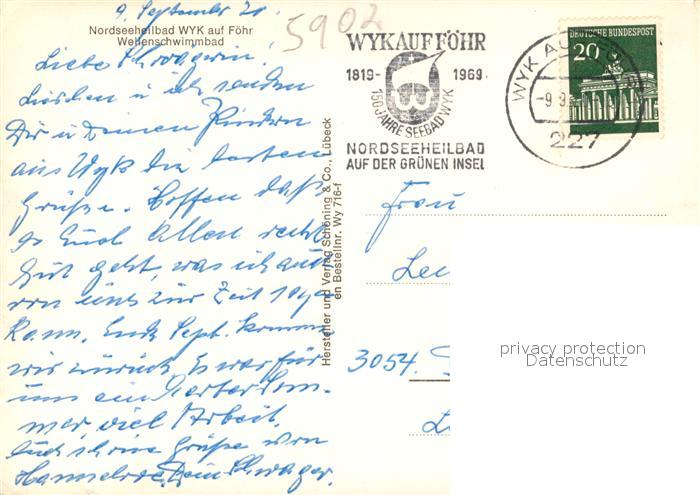 9. September 70
Nordseeheilbad WYK auf Föhr
Wellenschwimmbad
5902
Liebe Schwägerin!
Lieschen u ich senden
Dir u Deinen Kindern
aus Wyk die besten
Grüße. Hoffen daß
es Euch Allen recht
gut geht, was ich auch
von uns zur Zeit sagen
kann. Ende Sept. kommen
wir zurück. Es war für
uns ein Sommer
viel Arbeit.
Auch schöne Grüße von
Hannelore. Dein Schwager.
Hersteller und Verlag Schöning & Co., Lübeck
en Bestellnr. Wy 716-f
WYK AUF FÖHR
1819- 1969
150 JAHRE SEEBAD WYK
NORDSEEHEILBAD
AUF DER GRÜNEN INSEL
DEUTSCHE BUNDESPOST
20
WYK AUF
-9.9.
227
Frau
3054
privacy protection
Datenschutz